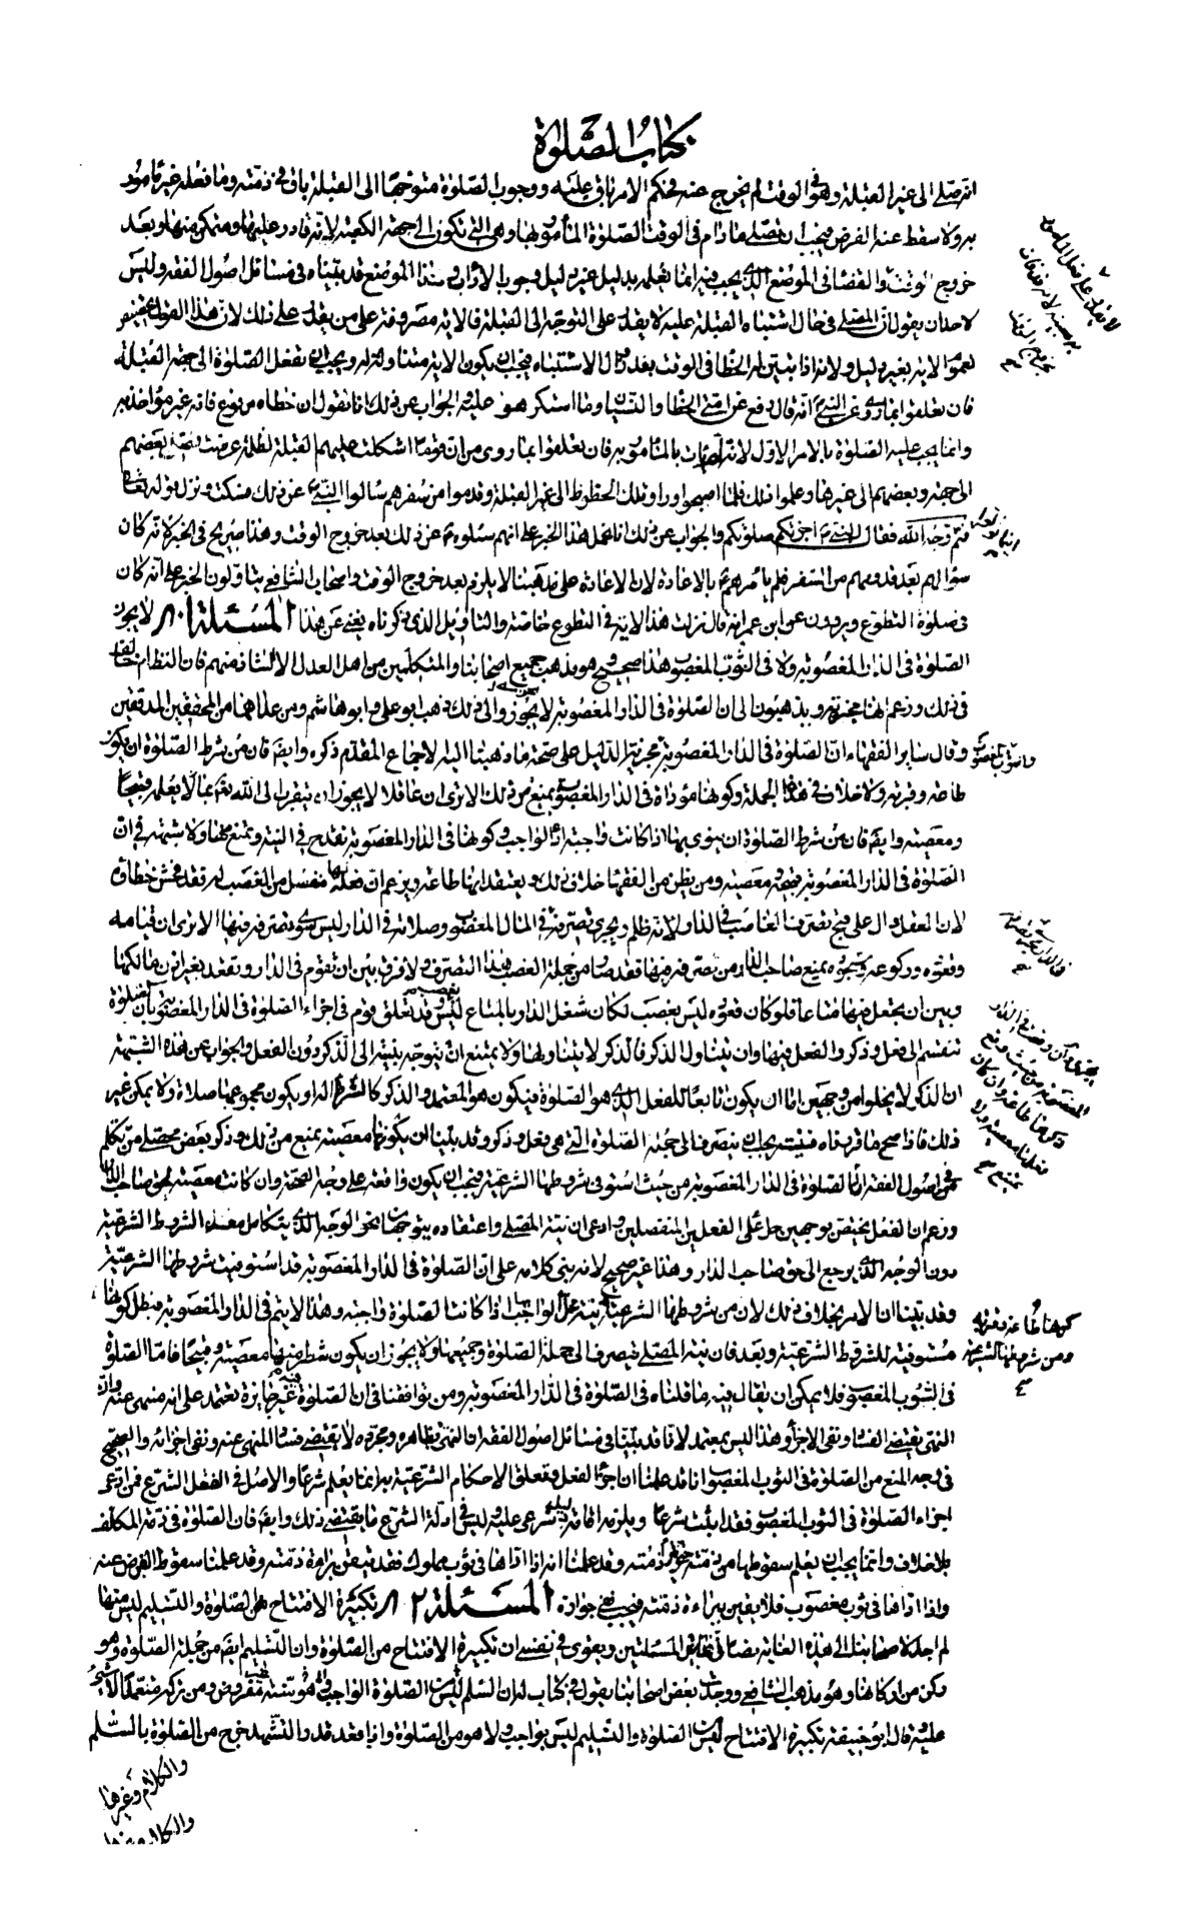 كتاب الصلوة
انه صلى الى غير القبلة وهو في الوقت لم يخرج عنه فحكم الامر باق عليه ووجوب الصلوة متوجها الى القبلة باق في ذمته وما فعله غير مأمور
به ولا سقط عنه الفرض فيجب ان يصلى ما دام في الوقت الصلوة المأمور بها وهى التى تكون الى جهة الكعبة لانه قادر عليها ومتمكن منها وبعد
خروج الوقت والقضا في الموضع الذي يجب فيه انما يعلم بدليل غير دليل وجوب الاداء وهذا الموضع قد بيناه في مسائل اصول الفقه وليس
لاحد ان يقول ان المصلى في حال اشتباه القبلة عليه لا يقدر على التوجه الى القبلة فالاية مصروفة على من يقدر على ذلك لان هذا القول تخصيص
لعموم الاية بغير دليل ولانه اذا تبين له الخطأ في الوقت بعد زوال الاشتباه فيجب ان يكون الاية متناولة له ويجب ان يفعل الصلوة الى جهة القبلة
فان تعلقوا بما روى عن النبي انه قال رفع عن امتى الخطأ والنسيان وما استكرهوا عليه والجواب عن ذلك انا نقول ان خطاه مرفوع فانه غير مؤاخذ به
وانما يجب عليه الصلوة بالامر الاول لانه لم يأت بالمأمور به فان تعلقوا بما روى من ان قوما اشكلت عليهم القبلة لظلمة عرضت فصلى بعضهم
الى جهة وبعضهم الى غيرها وعلموا ذلك فلما اصبحوا وراوا تلك الخطوط الى غير القبلة وقدموا من سفرهم سألوا النبي عن ذلك فسكت ونزل قوله تعالى
فثم وجه الله فقال النبي اجزتكم صلوتكم والجواب عن ذلك انا نحمل هذا الخبر على انهم سئلوه عن ذلك بعد خروج الوقت وهذا صريح في الخبر لانه كان
سؤالهم بعد قدومهم من السفر فلم يأمرهم بالاعادة لان الاعادة على مذهبنا لا يلزم بعد خروج الوقت واصحاب الشافعي يتأولون الخبر على انه كان
في صلوة التطوع ويروون عن ابن عمر انه قال نزلت هذا الاية في التطوع خاصة والتاويل الذى ذكرناه يغنى عن هذا المسئلة ٨٠ لا يجوز
الصلوة في الدار المغصوبة ولا في الثوب المغصوب هذا صحيح وهو مذهب جميع اصحابنا والمتكلمين من اهل العدل الا الشاذ منهم فان النظام خالف
في ذلك وزعم انها مجزية ويذهبون الى ان الصلوة في الدار المغصوبة لا يجوز والى ذلك ذهب ابو على وابو هاشم ومن عداهما من المحققين المدققين
وقال ساير الفقهاء ان الصلوة في الدار المغصوبة مجزية الدليل على صحة ما ذهبنا اليه الاجماع المقدم ذكره وايضا فان من شرط الصلوة ان يكون
طاعة وقربة ولا خلاف في هذه الجملة وكونها مؤداة في الدار المغصوبة يمنع من ذلك الا ترى ان عاقلا لا يجوز ان يتقرب الى الله تعالى بما لا يعلمه قبيحا
ومعصية وايضا فان من شرط الصلوة ان ينوى بها اذا كانت واجبة اداء الواجب وكونها في الدار المغصوبة تقدح في النية وتمنع منها ولا شبهة في ان
الصلوة في الدار المغصوبة قبيحة ومعصية ومن يظن من الفقها خلاف ذلك ويعتقد انها طاعة ويزعم ان فعله لها منفصل من الغصب له فقد فحش خطاؤه
لان العقل دال على قبح تصرف الغاصب في الدار لانه ظلم ويجري تصرفه في المال المغصوب وصلاته في الدار ليس سوى تصرف فيها الا ترى ان قيامه
وقعوده وركوعه وسجوده يمنع صاحب الدار من تصرفه فيها فقد صار من جملة الغصب هذا التصرف ولا فرق بين ان تقوم في الدار وتقعد بغير اذن مالكها
وبين ان يجعل فيها متاعا فلو كان قعوده ليس بغصب لكان شغل الدار بالمتاع ليس بغصب وقد تعلق قوم في اجزاء الصلوة في الدار المغصوبة بأن الصلوة
تنقسم الى فعل وذكر والفعل فيها وان يتناول الدار فالذكر لا يتناولها ولا يمتنع ان يتوجه بنيته الى الذكر دون الفعل والجواب عن هذه الشبهة
ان الذكر لا يخلو من وجهين اما ان يكون تابعا للفعل الذي هو الصلوة فيكون هو المعتمد والذكر كالشرط له او يكون مجموعهما صلاة ولا يمكن غير
ذلك فاذا صح ما قررناه فنيته يجب ان ينصرف الى جملة الصلوة التى هى فعل وذكر وقد بينا ان كونها معصية يمنع من ذلك وذكر بعض محصلى من تكلم
في اصول الفقه ان الصلوة في الدار المغصوبة من حيث استوفى شروطها الشرعية فيجب ان يكون واقعة على وجه الصحة وان كانت معصية لحق صاحب الدار
وزعم ان الفعل يختص بوجهين حل محل الفعلين المنفصلين وادعى ان نية المصلى واعتقاده يتوجهان نحو الوجه الذي يتكامل معه الشروط الشرعية
دون الوجه الذي يرجع الى حق صاحب الدار وهذا غير صحيح لانه بنى كلامه على ان الصلوة في الدار المغصوبة قد استوفيت شروطها الشرعية
وقد بينا ان الامر بخلاف ذلك لان من شروطها الشرعية نية اداء الواجب اذا كانت الصلوة واجبة وهذا لا يتم في الدار المغصوبة فبطل كونها
مستوفية للشروط الشرعية وبعد فان نية المصلى ينصرف الى جملة الصلوة وجميعها ولا يجوز ان يكون شطر منها معصية وقبيحا فاما الصلوة
في الثوب المغصوب فلا يمكن ان يقال فيه ما قلناه في الصلوة في الدار المغصوبة ومن يوافقنا في ان الصلوة فيه غير جايزة يعتمد على انه منهى عنه وان
النهى يقتضى الفساد ونفى الاجزاء وهذا ليس بمعتمد لانا قد بينا في مسائل اصول الفقه ان النهى بظاهره ومجرده لا يقتضى فساد المنهى عنه ونفى اجزائه والصحيح
في وجه المنع من الصلوة في الثوب المغصوب انا قد علمنا ان اجزاء الفعل وتعلق الاحكام الشرعية به انما يعلم شرعا والاصل في الفعل الشرع فمن ادعى
اجزاء الصلوة في الثوب المغصوب فقد اثبت شرعا ويلزمه اقامة دليل شرعى عليه وليس في ادلة الشرع ما يقتضى ذلك وايضا فان الصلوة في ذمة المكلف
بلا خلاف وانما يجب ان يعلم سقوطها من ذمته وقد علمنا انه اذا اداها في ثوب مملوك فقد تيقن براءة ذمته وقد علمنا سقوط الفرض عنه
واذا اداها في ثوب مغصوب فلا يقين ببراءة ذمته فيجب نفى جوازه المسئلة ٨٢ تكبيرة الافتتاح من الصلوة والتسليم ليس منها
لم اجد لاصحابنا الى هذه الغاية نصا في هاتين المسئلتين ويقوى في نفسى ان تكبيرة الافتتاح من الصلوة وان التسليم ايضا من جملة الصلوة وهو
ركن من اركانها وهو مذهب الشافعي ووجدت بعض اصحابنا يقول في كتاب له ان السلم ليس من الصلوة الواجبة وهو سنة غير مفروض ومن تركه متعمدا لا شيء
عليه وقال ابو حنيفة تكبيرة الافتتاح ليس من الصلوة والتسليم ليس بواجب ولا هو من الصلوة واذا قعد قدر التشهد خرج من الصلوة بالسلم
والكلام وغيرهما